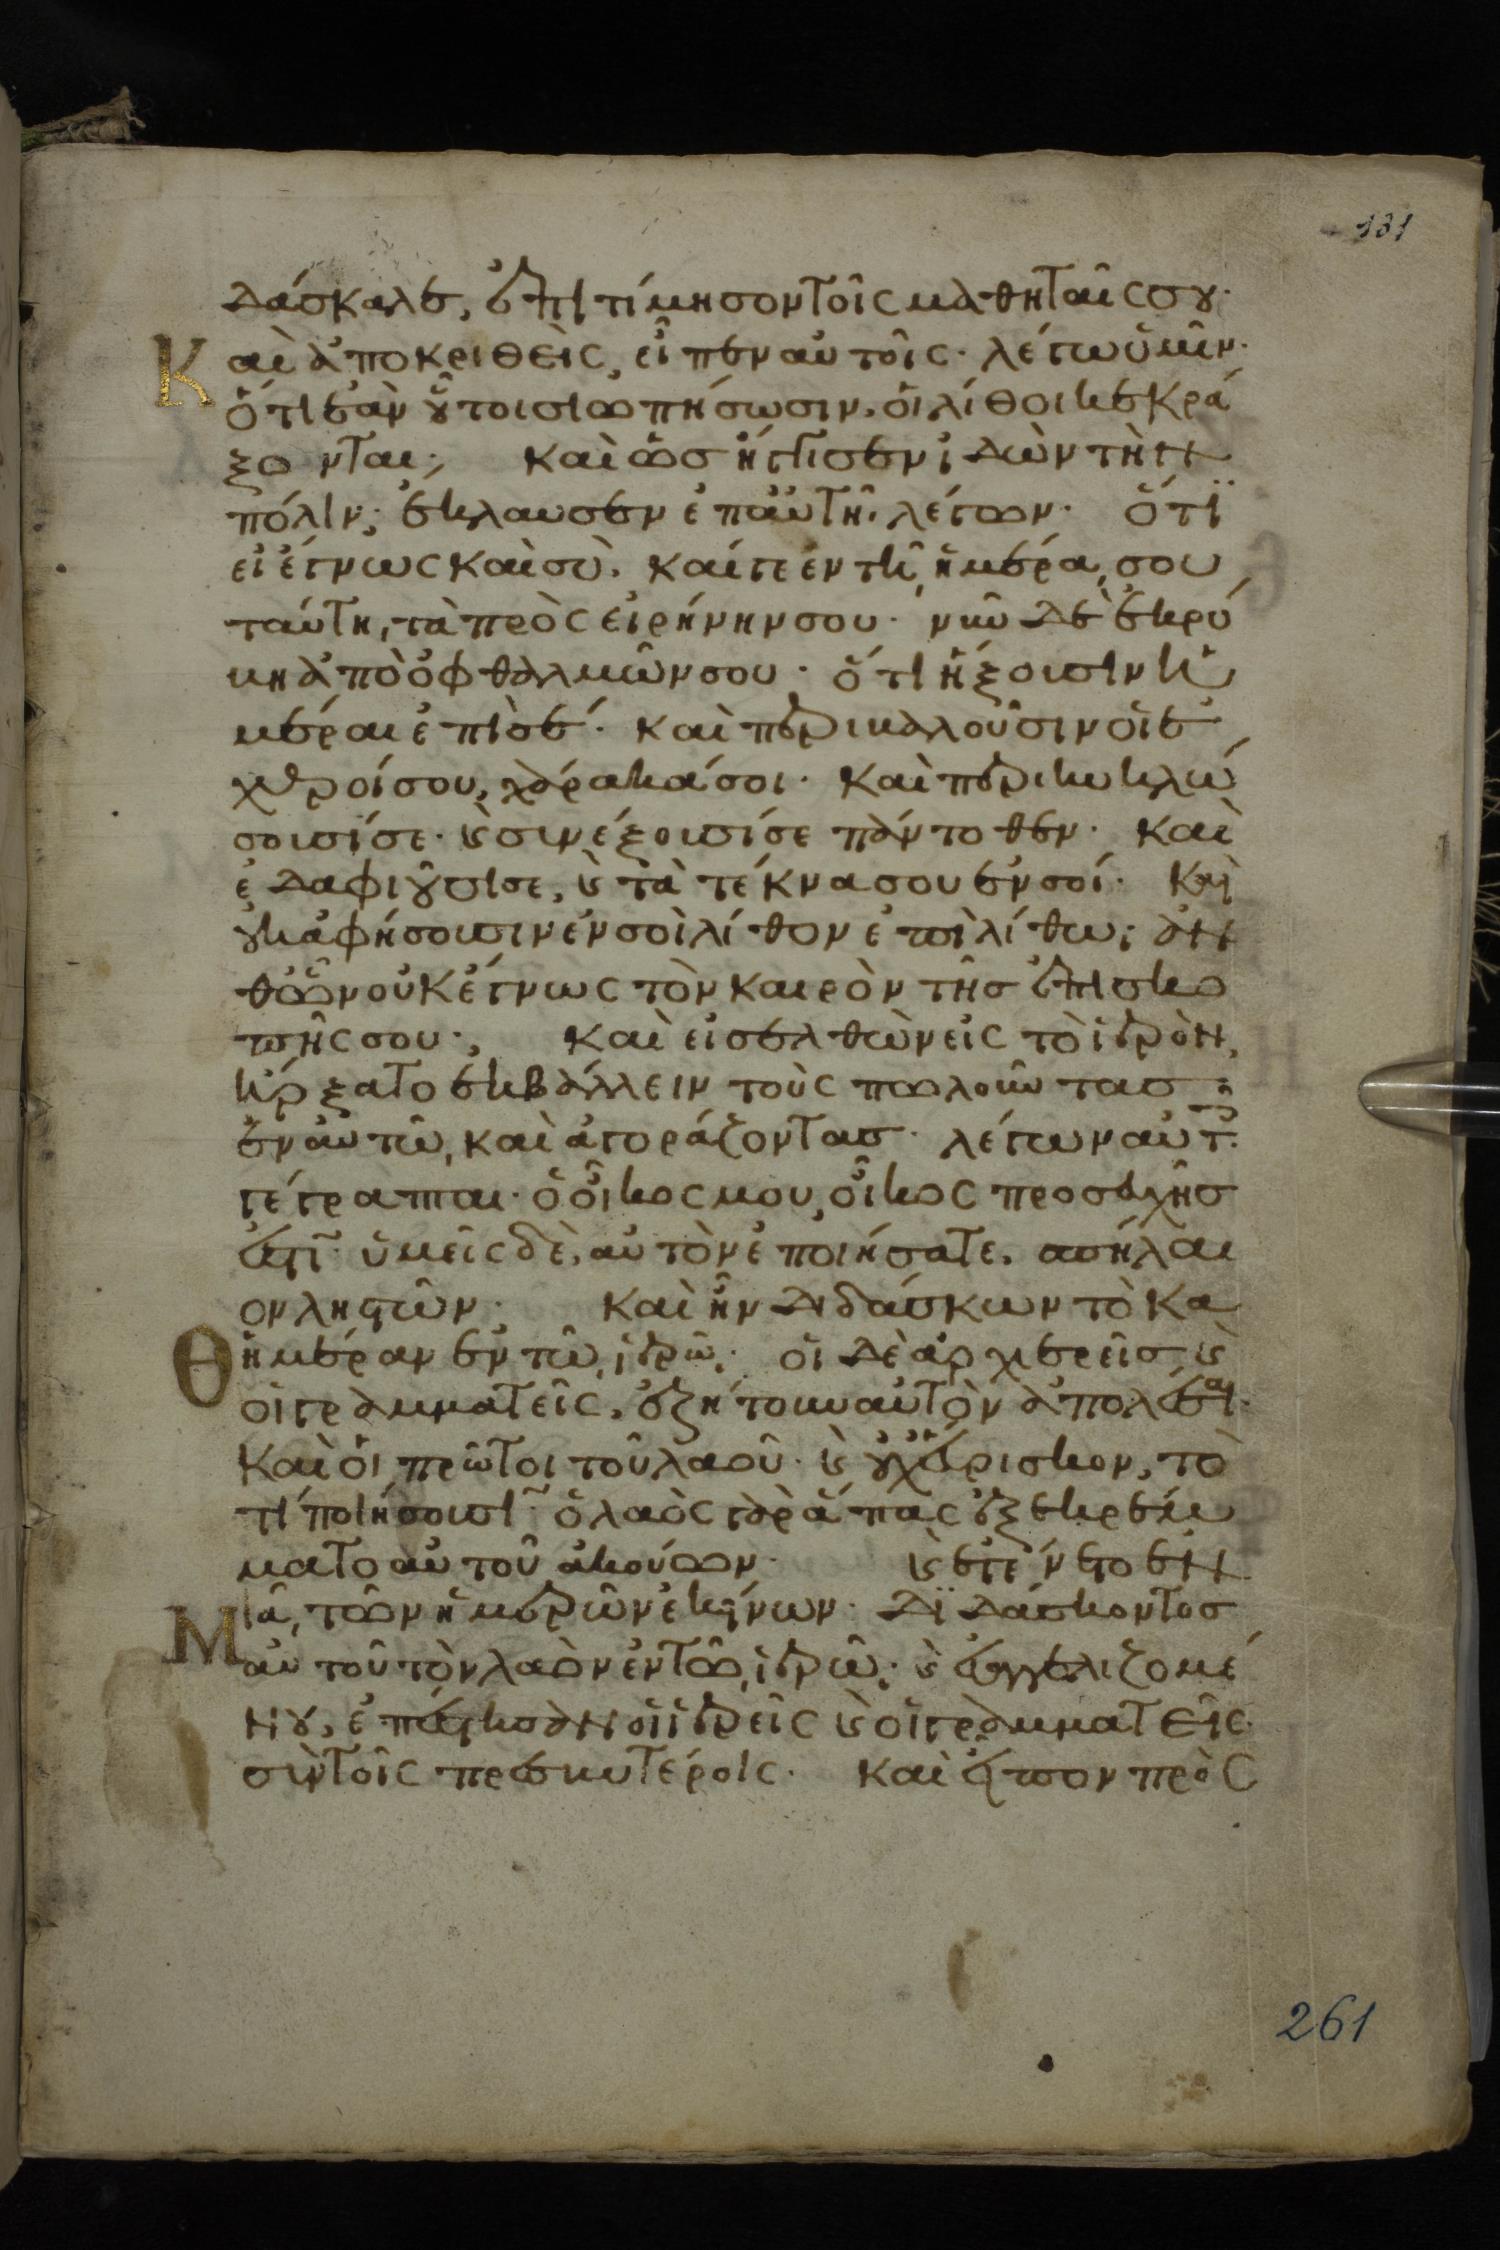 131
δάσκαλε, ἐπιτίμησον τοῖς μαθηταῖς σου·
Καὶ ἀποκριθεὶς, εἶπεν αὐτοῖς· λέγω ὑμῖν·
ὅτι ἐὰν οὗτοι σιωπήσωσιν, οἱ λίθοι κεκρά
ξονται; καὶ ὡς ἤγγισεν ἰδὼν τὴν
πόλιν· ἔκλαυσεν ἐπ αὐτῆ· λέγων· ὅτι
εἰ ἔγνως καὶ σὺ· καί γε ἐν τῆ ἡμέρα σου
ταύτη, τὰ πρὸς εἰρήνην σου· νῦν δὲ ἐκρύ
βη ἀπὸ ὀφθαλμῶν σου· ὅτι ἥξουσιν ἡ
μέραι ἐπὶ σέ· καὶ περιβαλοῦσιν οἱ ἐ
χθροί σου, χάρακά σοι· καὶ περικυκλώ
σουσί σε· καὶ συνέξουσί σε πάντοθεν· καὶ
ἐδαφιοῦσί σε, καὶ τὰ τέκνα σου ἐν σοί· καὶ
οὐκ ἀφήσουσιν ἐν σοὶ λίθον ἐπὶ λίθω· ἀν
θῶν οὐκ ἔγνως τὸν καιρὸν τῆς ἐπισκο
πῆς σου· καὶ εἰσελθὼν εἰς τὸ ἱερὸν,
ἤρξατο ἐκβάλλειν τοὺς πωλοῦντας
ἐν αὐτῶ, καὶ ἀγοράζοντας· λέγων αὐτ
γέγραπται· ὁ οἶκος μου, οἶκος προσευχῆς
ἐστι· ὑμεῖς δὲ, αὐτὸν ἐποιήσατε, σπήλαι
ον ληστῶν· καὶ ἦν διδάσκων τὸ κα
Θημέραν ἐν τῶ ἱερῶ· οἱ δὲ ἀρχιερεῖς καὶ
οἱ γραμματεῖς, ἐζήτουν αὐτὸν ἀπολέσαι·
καὶ οἱ πρῶτοι τοῦ λαοῦ· καὶ οὐχ εὕρισκον, τὸ
τί ποιήσουσι· ὁ λαὸς γὰρ ἅπας ἐξεκρέμ
ματο αὐτοῦ ἀκούων· καὶ ἐγένετο ἐν
Μιᾶ, τῶν ἡμερῶν ἐκείνων· διδάσκοντος
αὐτοῦ τὸν λαὸν ἐν τῶ ἱερῶ· καὶ εὐαγγελιζομέ
νου, ἐπέστησαν οἱ ἱερεῖς καὶ οἱ γραμματεῖς
σὺν τοῖς πρεσβυτέροις· καὶ εἶπον πρὸς
261